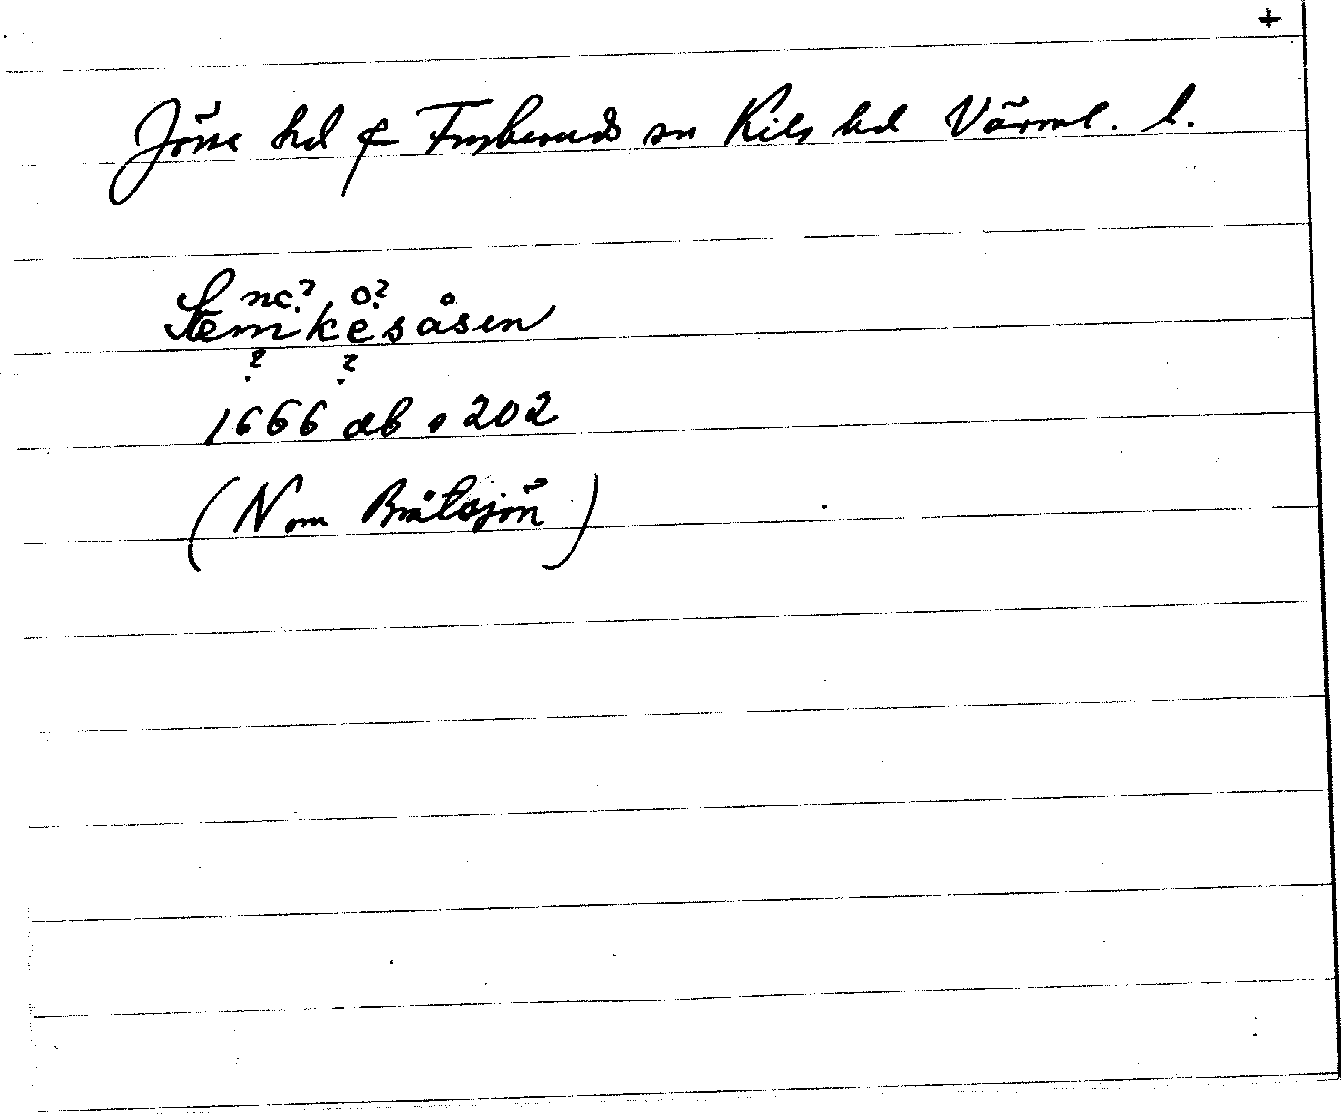 +
Jösse hd & Frykeruds sn Kils hd Värml. l.
nc? o?
Stemkesåsen
? ?
1666 ab s 202
(N om Bråtsjön)